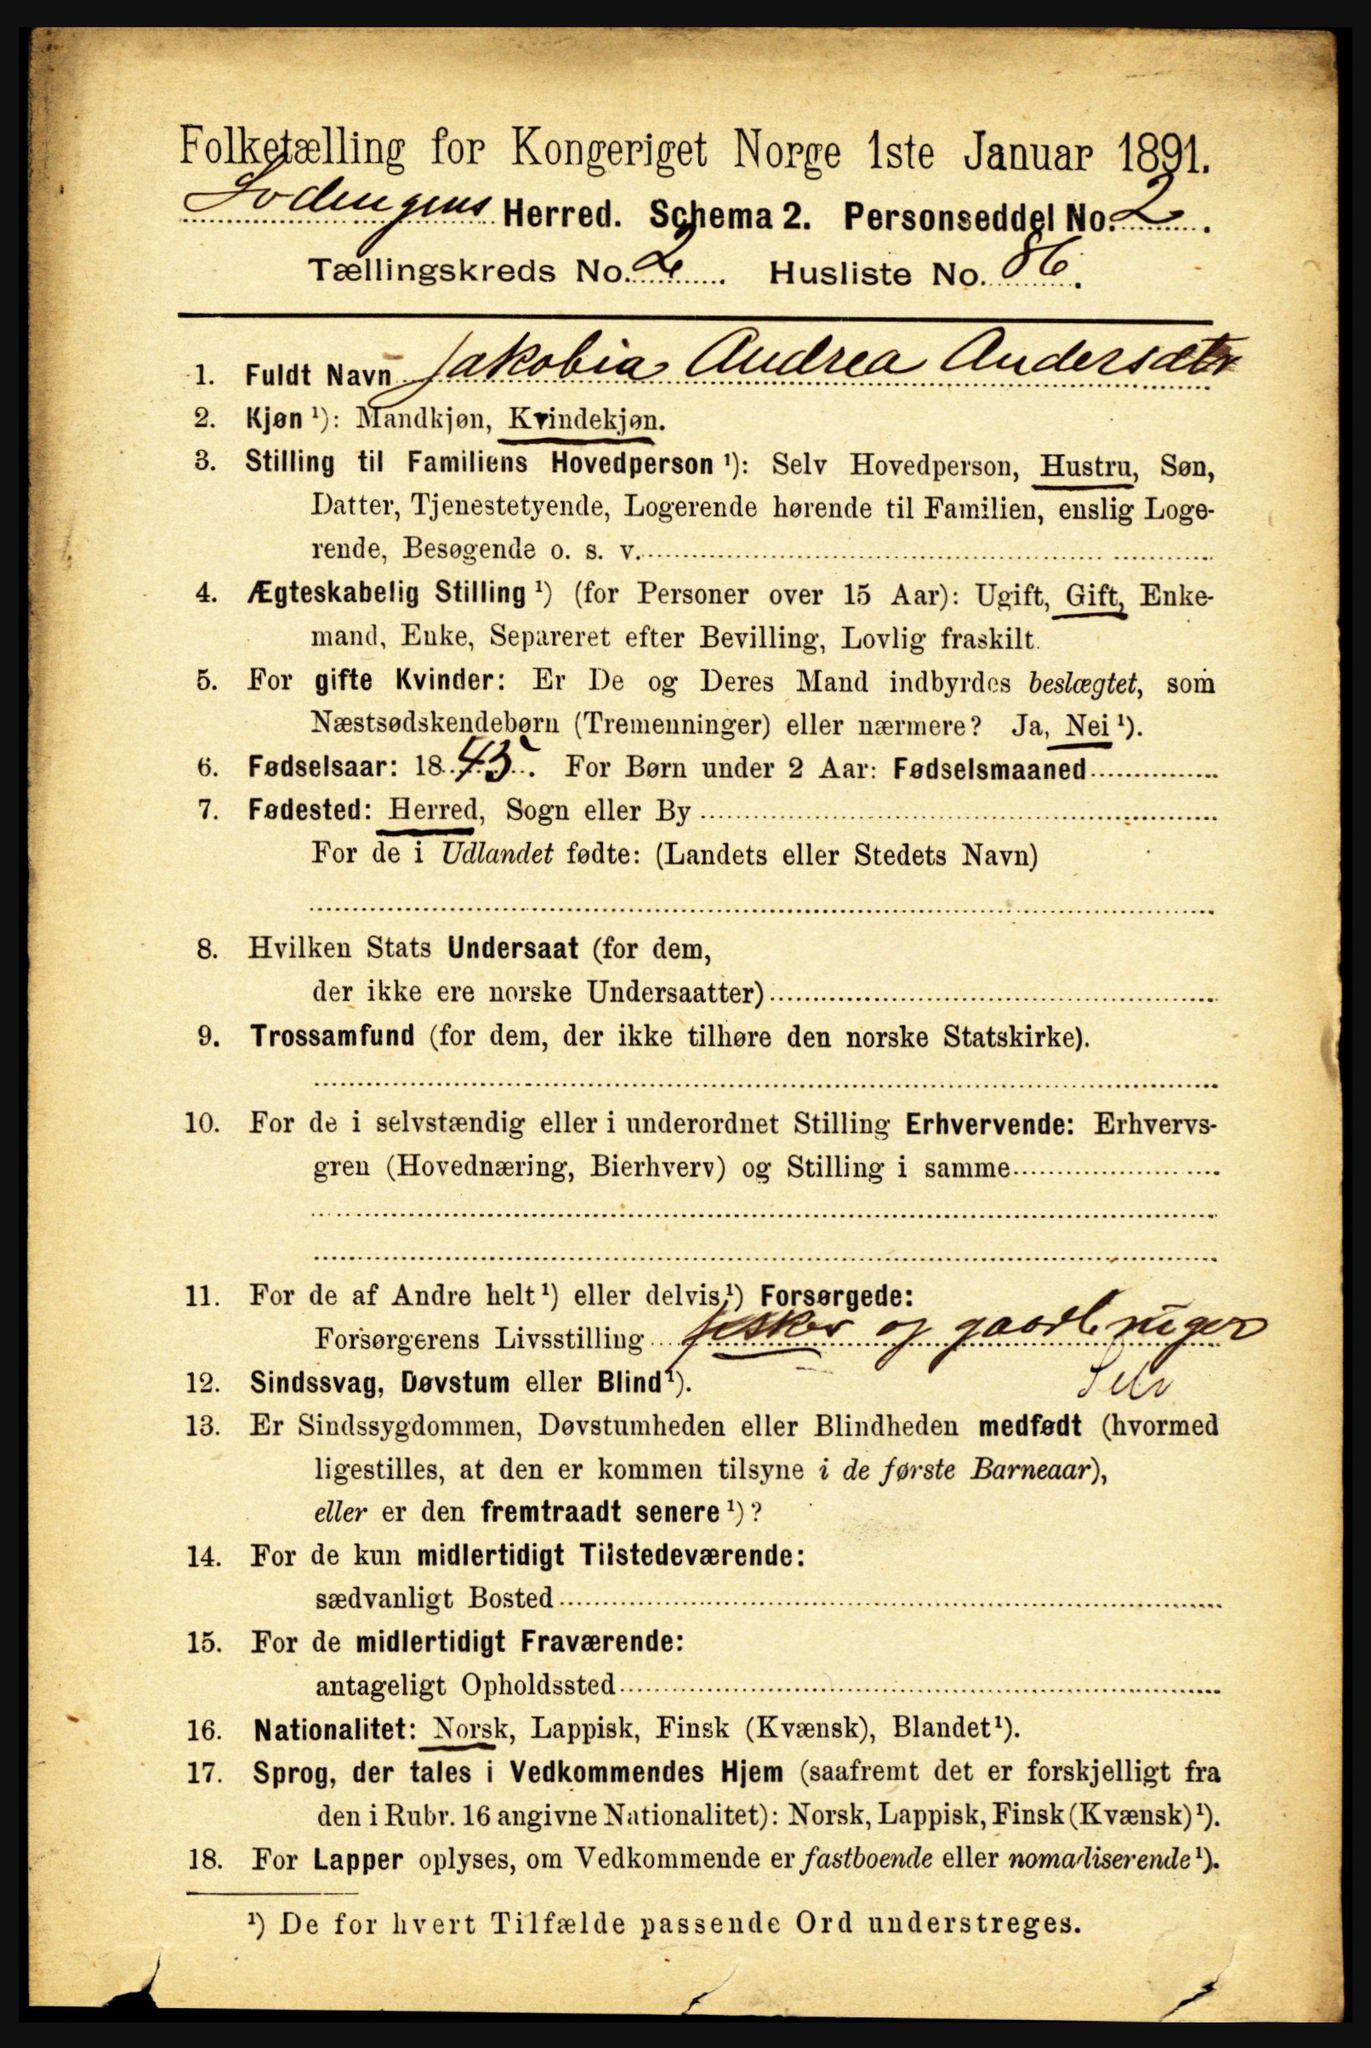 Folketælling for Kongeriget Norge 1ste Januar 1891.
Lodingens Herred. Schema 2. Personseddel No. 2.
Tællingskreds No. 2. Husliste No. 86.
1. Fuldt Navn Jakobia Andrea Andersdtr
2. Kjøn ¹): Mandkjøn, Kvindekjøn.
3. Stilling til Familiens Hovedperson ¹): Selv Hovedperson, Hustru, Søn,
Datter, Tjenestetyende, Logerende hørende til Familien, enslig Loge-
rende, Besøgende o. s. v.
4. Ægteskabelig Stilling ¹) (for Personer over 15 Aar): Ugift, Gift, Enke-
mand, Enke, Separeret efter Bevilling, Lovlig fraskilt.
5. For gifte Kvinder: Er De og Deres Mand indbyrdes beslægtet, som
Næstsødskendebørn (Tremenninger) eller nærmere? Ja, Nei ¹).
6. Fødselsaar: 1843. For Børn under 2 Aar: Fødselsmaaned
7. Fødested: Herred, Sogn eller By
For de i Udlandet fødte: (Landets eller Stedets Navn)
8. Hvilken Stats Undersaat (for dem,
der ikke ere norske Undersaatter)
9. Trossamfund (for dem, der ikke tilhøre den norske Statskirke).
10. For de i selvstændig eller i underordnet Stilling Erhvervende: Erhvervs-
gren (Hovednæring, Bierhverv) og Stilling i samme
11. For de af Andre helt ¹) eller delvis ¹) Forsørgede:
Forsørgerens Livsstilling fisker og gaardbruger
Selv
12. Sindssvag, Døvstum eller Blind ¹).
13. Er Sindssygdommen, Døvstumheden eller Blindheden medfødt (hvormed
ligestilles, at den er kommen tilsyne i de første Barneaar),
eller er den fremtraadt senere ¹)?
14. For de kun midlertidigt Tilstedeværende:
sædvanligt Bosted
15. For de midlertidigt Fraværende:
antageligt Opholdssted
16. Nationalitet: Norsk, Lappisk, Finsk (Kvænsk), Blandet ¹).
17. Sprog, der tales i Vedkommendes Hjem (saafremt det er forskjelligt fra
den i Rubr. 16 angivne Nationalitet): Norsk, Lappisk, Finsk (Kvænsk) ¹).
18. For Lapper oplyses, om Vedkommende er fastboende eller nomadiserende ¹).
¹) De for hvert Tilfælde passende Ord understreges.